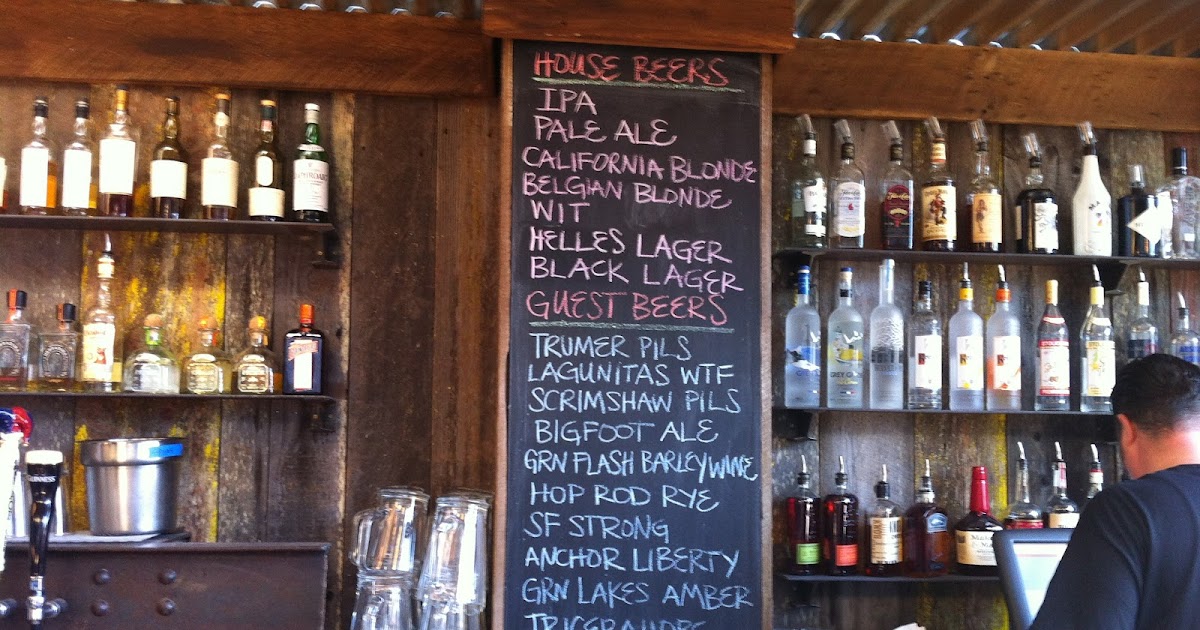 HOUSE BEERS
IPA
PALE ALE
CALIFORNIA BLONDE
BELGIAN BLONDE
WIT
HELLES LAGER
BLACK LAGER
GUEST BEERS
TRUMER PILS
LAGUNITAS WTF
SCRIMSHAW PILS
BIGFOOT ALE
GRN FLASH BARLEYWINE
HOP ROD RYE
SF STRONG
ANCHOR LIBERTY
GRN LAKES AMBER
GUINNESS